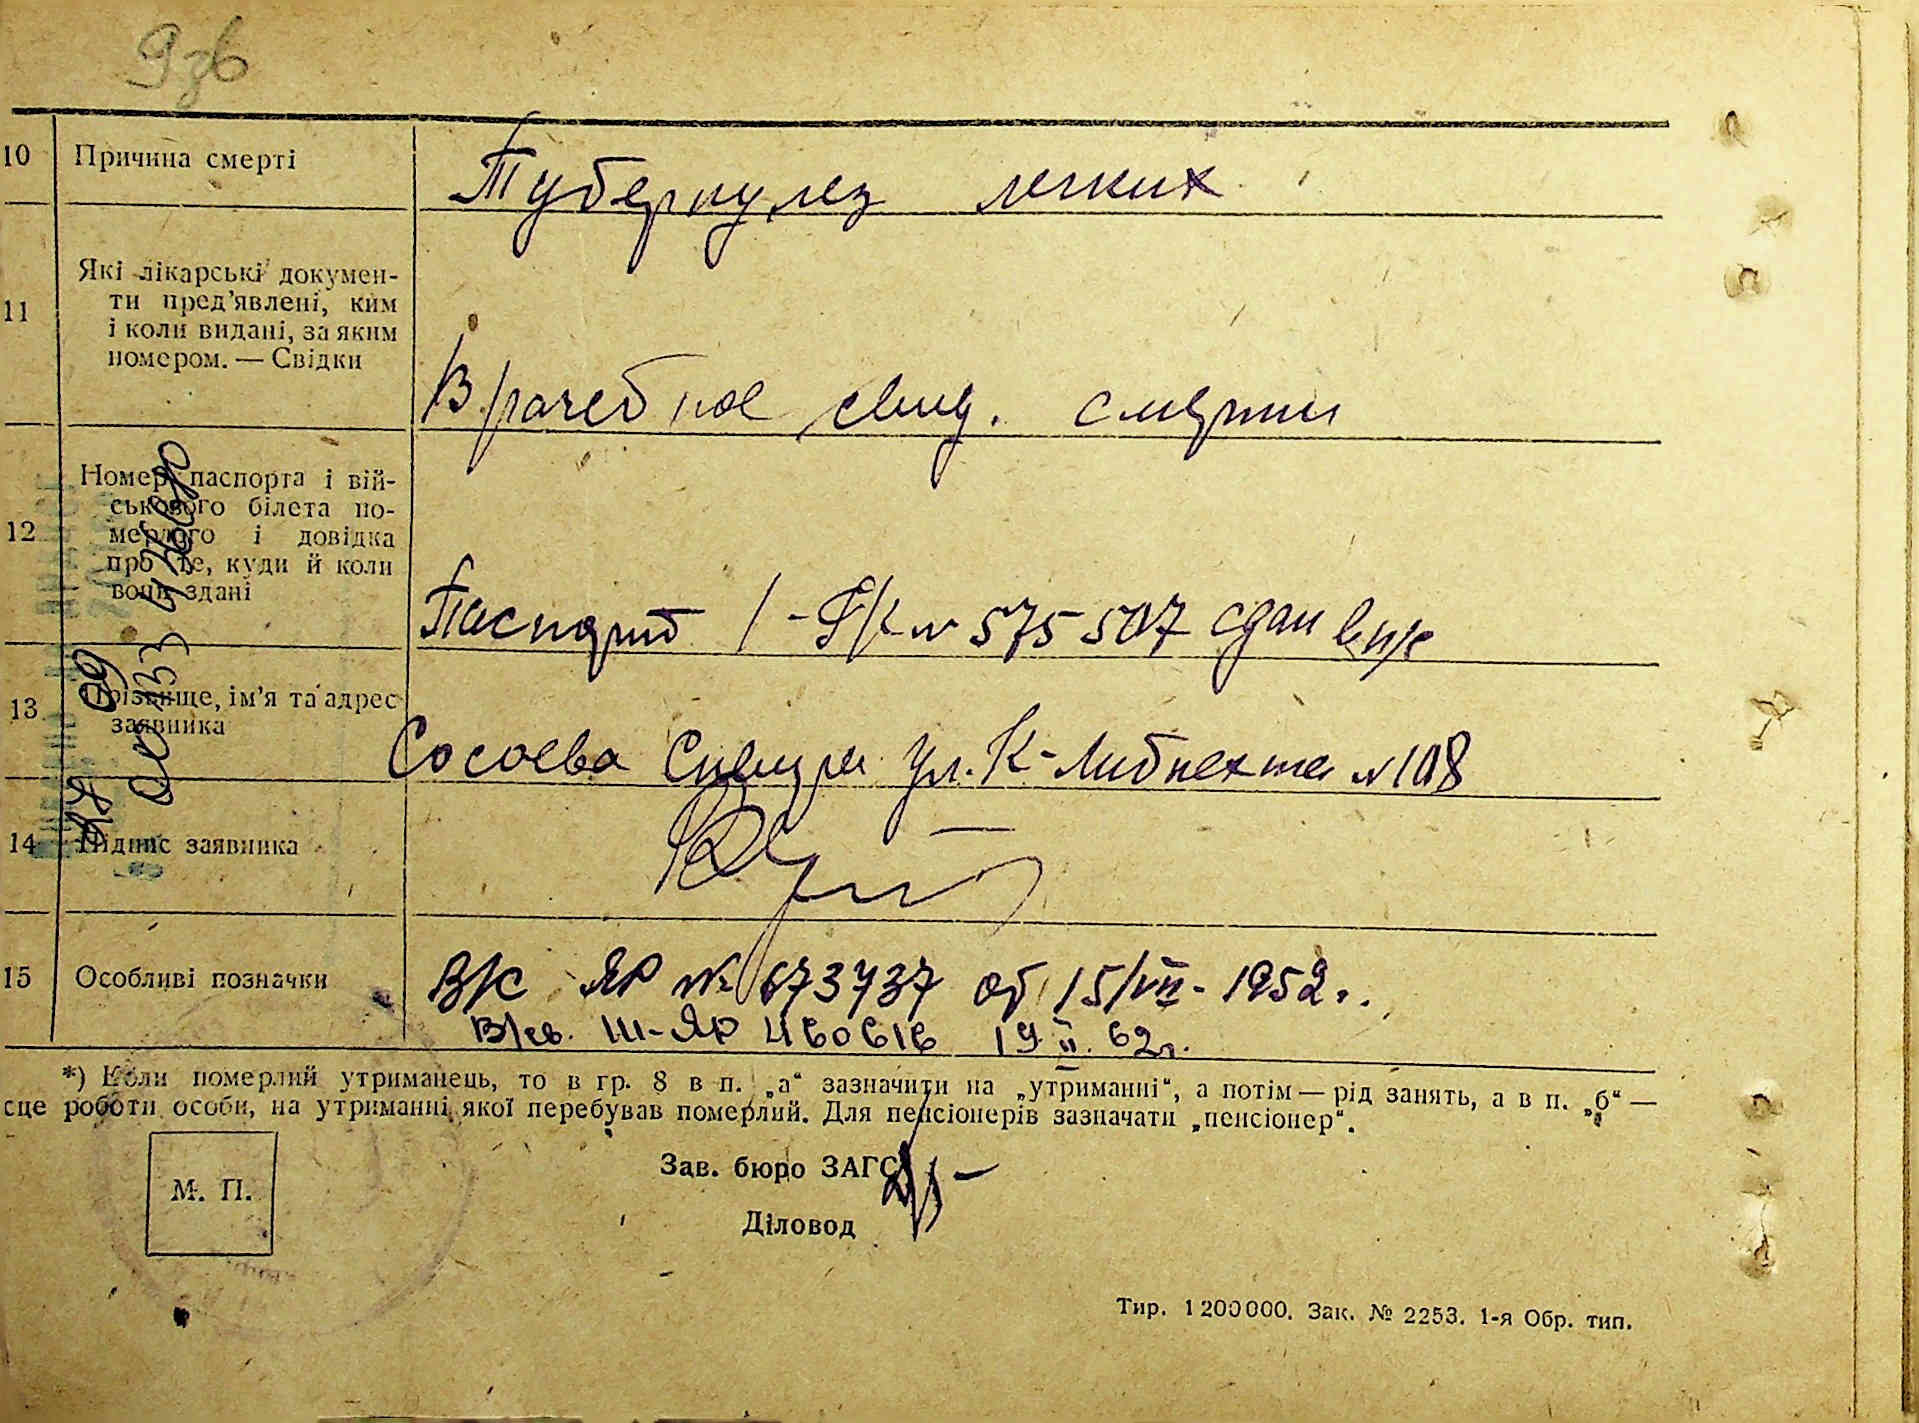 10 Причина смерті
Туберкулез легких
11 Які лікарські докумен-
ти пред'явлені, ким
і коли видані, за яким
номером. — Свідки
Врачебное свид. смерти
12 Номер паспорта і вій-
ськового білета по-
мерлого і довідка
про те, куди й коли
вони здані
Паспорт № 575507 сдан
13 Прізвище, ім'я та адрес
заявника
Сосоева ул. К-Либкнехта № 108
14 Підпис заявника
15 Особливі позначки
ЯР № 673737 от 15/VII - 1952 г.
III-ЯР 460616 19 II. 62 г.
*) Коли померлий утриманець, то в гр. 8 в п. „а“ зазначити на „утриманні“, а потім — рід занять, а в п. „б“ —
сце роботи особи, на утриманні якої перебував померлий. Для пенсіонерів зазначати „пенсіонер“.
М. П.
Зав. бюро ЗАГС
Діловод
Тир. 1200000. Зак. № 2253. 1-я Обр. тип.